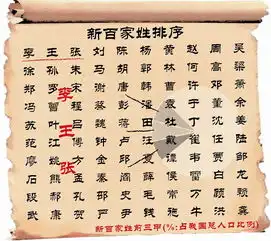 新百家姓排序
李 王 张 刘 陈 杨 黄 赵 周 吴
徐 孙 朱 马 胡 郭 林 何 高 梁
郑 罗 宋 谢 唐 韩 曹 许 邓 萧
冯 曾 程 蔡 彭 潘 袁 于 董 余
苏 叶 吕 魏 蒋 田 杜 丁 沈 姜
范 江 傅 钟 卢 汪 戴 崔 任 陆
廖 姚 方 金 邱 夏 谭 韦 贾 邹
石 熊 孟 秦 阎 薛 侯 雷 白 龙
段 郝 孔 邵 史 毛 常 万 顾 赖
武 康 贺 严 尹 钱 施 牛 洪 龚
李
王
张
新百家姓前三甲(%:占我国总人口比例)